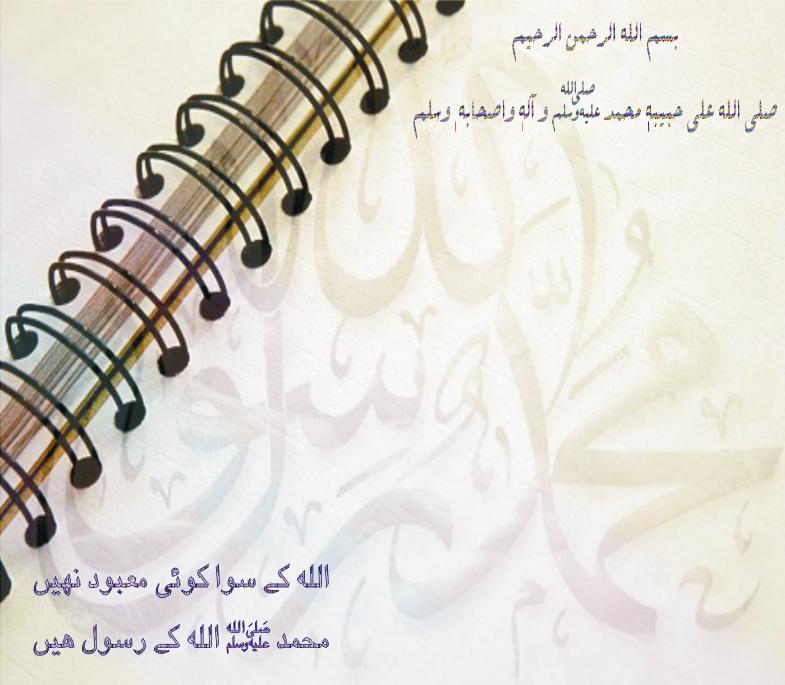 بسم الله الرحمن الرحيم
صلی الله علی حبیبهٖ محمد صلی‌الله علیه‌وسلم و آلهٖ واصحابهٖ وسلم
الله کے سوا کوئی معبود نهیں
محمد صلی‌الله علیه‌وسلم الله کے رسول هیں